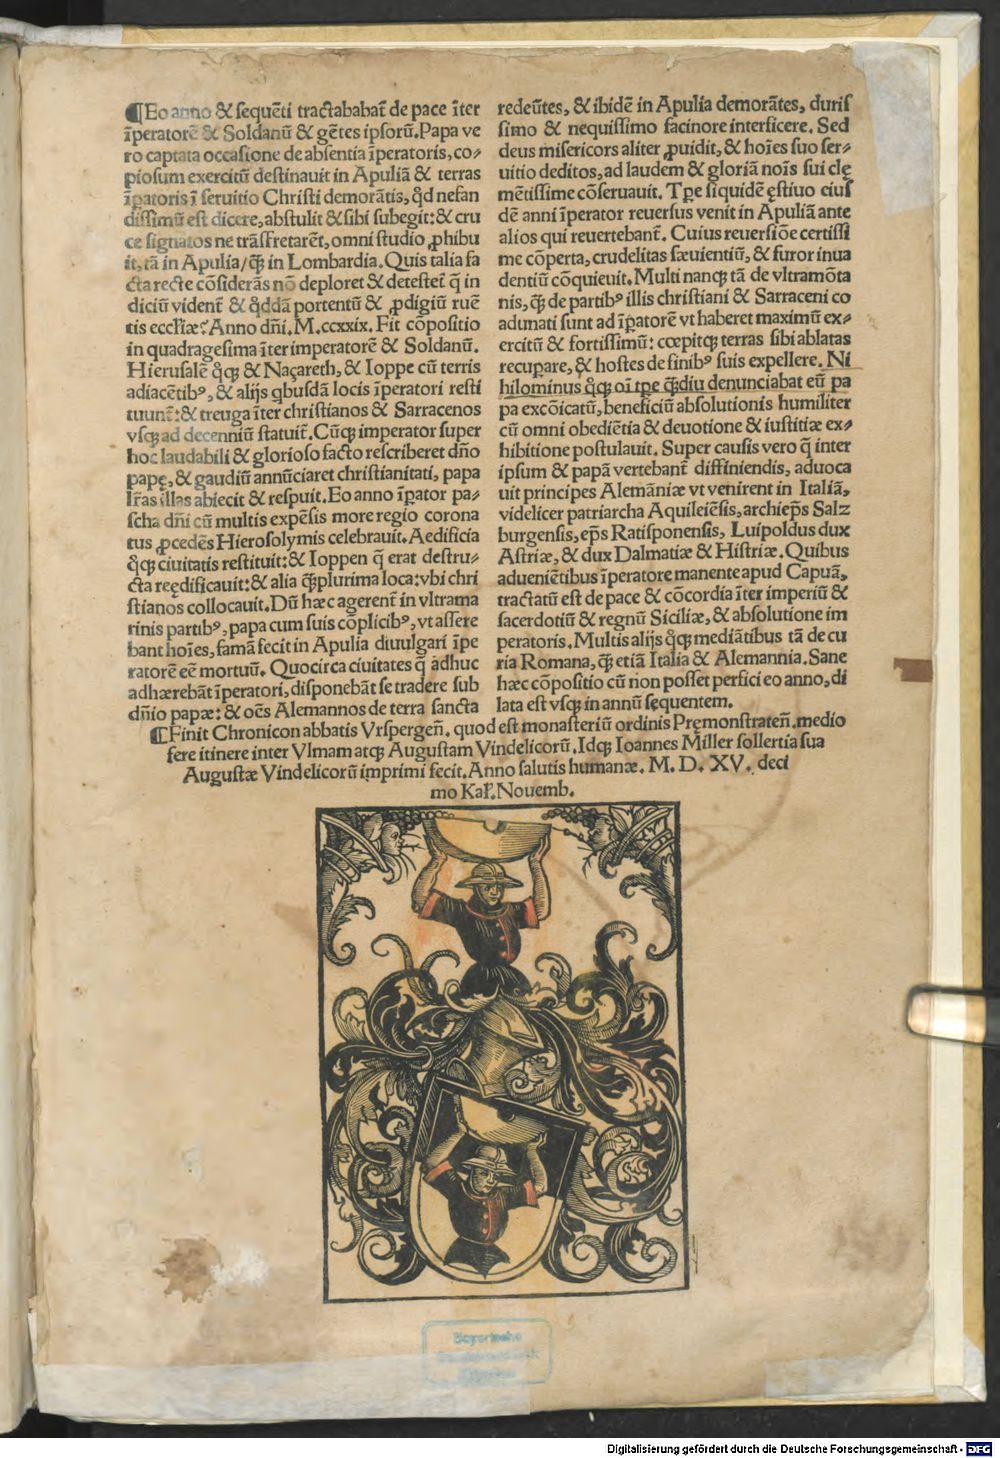 ¶Eo anno & sequẽti tractababat̃ de pace ĩter
ĩperatorẽ & Soldanũ & gẽtes ipsorũ. Papa ve
ro captata occasione de absentia ĩperatoris, co⸗
piosum exercitũ destinauit in Apuliã & terras
ĩꝑatoris ĩ seruitio Christi demorãtis, qd̃ nefan
dissimũ est dicere, abstulit & sibi subegit: & cru
ce signatos ne trãsfretarẽt, omni studio ꝓhibu
it, tã in Apulia/ q̃ꝫ in Lombardia. Quis talia fa
cta recte cõsiderãs nõ deploret & detestet̃ q̃ in
diciũ vident̃ & qddã portentũ & ꝓdigiũ ruẽ
tis eccl̃iæ? Anno dñi. M. ccxxix. Fit cõpositio
in quadragesima ĩter imperatorẽ & Soldanũ.
Hierusalẽ qͦqꝫ & Naçareth, & Ioppe cũ terris
adiacẽtibꝰ, & alijs qbusdã locis ĩperatori resti
tuunt̃: & treuga ĩter christianos & Sarracenos
vsqꝫ ad decenniũ statuit̃. Cũqꝫ imperator super
hoc laudabili & glorioso facto rescriberet dño
papę, & gaudiũ annũciaret christianitati, papa
lr̃as illas abiecit & respuit. Eo anno ĩꝑator pa⸗
scha dñi cũ multis expẽsis more regio corona
tus ꝓcedẽs Hierosolymis celebrauit. Aedificia
qͦqꝫ ciuitatis restituit: & Ioppen q̃ erat destru⸗
cta reędificauit: & alia q̃ꝫplurima loca: vbi chri
stianos collocauit. Dũ hæc agerent̃ in vltrama
rinis partibꝰ, papa cum suis cõplicibꝰ, vt assere
bant hoĩes, famã fecit in Apulia diuulgari ĩpe
ratorẽ eẽ mortuũ. Quocirca ciuitates q̃ adhuc
adhærebãt ĩperatori, disponebãt se tradere sub
dñio papæ: & oẽs Alemannos de terra sancta
redeũtes, & ibidẽ in Apulia demorãtes, duris
simo & nequissimo facinore interficere. Sed
deus misericors aliter ꝓuidit, & hoĩes suo ser⸗
uitio deditos, ad laudem & gloriã noĩs sui clę
mẽtissime cõseruauit. Tꝑe siquidẽ ęstiuo eius
dẽ anni ĩperator reuersus venit in Apuliã ante
alios qui reuertebant̃. Cuius reuersiõe certissi
me cõperta, crudelitas sæuientiũ, & furor inua
dentiũ cõquieuit. Multi nanqꝫ tã de vltramõta
nis, q̃ꝫ de partibꝰ illis christiani & Sarraceni co
adunati sunt ad ĩꝑatorẽ vt haberet maximũ ex⸗
ercitũ & fortissimũ: cœpitqꝫ terras sibi ablatas
recuꝑare, & hostes de finibꝰ suis expellere. Ni
hilominus qͦqꝫ oĩ tꝑe q̃ꝫdiu denunciabat eũ pa
pa excõicatũ, beneficiũ absolutionis humiliter
cũ omni obediẽtia & deuotione & iustitiæ ex⸗
hibitione postulauit. Super causis vero q̃ inter
ipsum & papã vertebant̃ diffiniendis, aduoca
uit principes Alemãniæ vt venirent in Italiã,
videlicer patriarcha Aquileiẽsis, archiep̃s Salz
burgensis, ep̃s Ratisponensis, Luipoldus dux
Astriæ, & dux Dalmatiæ & Histriæ. Quibus
adueniẽtibus ĩperatore manente apud Capuã,
tractatũ est de pace & cõcordia ĩter imperiũ &
sacerdotiũ & regnũ Siciliæ, & absolutione im
peratoris. Multis alijs qͦqꝫ mediãtibus tã de cu
ria Romana, q̃ꝫ etiã Italia & Alemannia. Sane
hæc cõpositio cũ non posset perfici eo anno, di
lata est vsqꝫ in annũ sequentem.
¶Finit Chronicon abbatis Vrspergeñ. quod est monasteriũ ordinis Pręmonstrateñ. medio
fere itinere inter Vlmam atqꝫ Augustam Vindelicorũ. Idqꝫ Ioannes Miller sollertia sua
Augustæ Vindelicorũ imprimi fecit. Anno salutis humanæ. M. D. XV. deci
mo Kal̃. Nouemb.
Bayerische
Digitalisierung gefördert durch die Deutsche Forschungsgemeinschaft - DFG